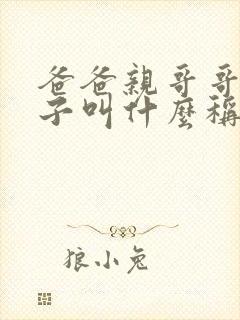 爸爸親哥哥
子叫什麼稱
狼小兔